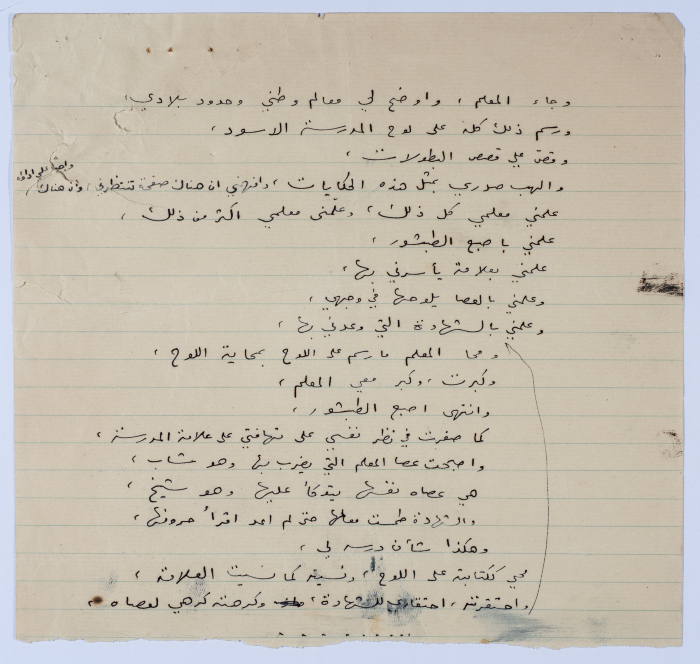 وجاء المعلم ، واوضح لي معالم وطني وحدود بلادي ،
ورسم ذلك كله على لوح المدرسة الاسود ،
وقص علي قصص البطولات ،
والهب صدري بمثل هذه الحكايات ، وافهمني ان هناك صفحة تنتظرني ، وان هناك
واجبا علي اداؤه
علمني معلمي كل ذلك ، وعلّمني معلمي اكثر من ذلك ،
علمني باصبع الطبشور ،
علمني بعلامة يأسرني بها ،
وعلمني بالعصا يلوحها في وجهي ،
وعلمني بالشهادة التي وعدني بها ،
ومحا المعلم ما رسم على اللوح بمحاية اللوح ،
وكبرت ، وكبر معي المعلم ،
وانتهى اصبع الطبشور ،
كما صغرت في نظر نفسي على تهافتي على علامة المدرسة ،
واصبحت عصا المعلم التي يضرب بها وهو شاب ،
هي عصاه نفسها يتوكأ عليها وهو شيخ ،
والشهادة طمست معالمها حتى لم اعد اقرأ حروفها ،
وهكذا شأن درسه لي ،
محي ككتابته على اللوح ، ونسيته كما نسيت العلامة ،
واحتقرته ، احتقاري للشهادة ، وكرهته كرهي لعصاه .
. . . . . . . . . .